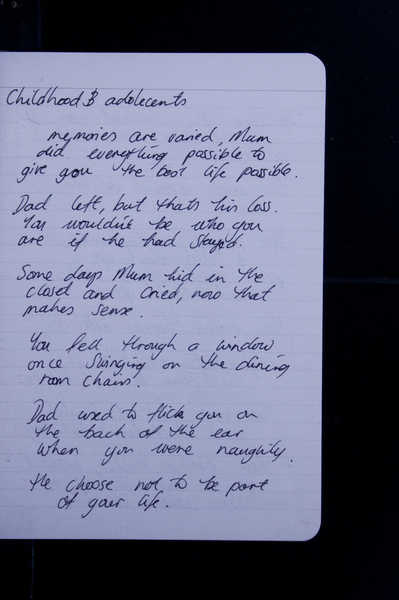 Childhood & adolecents
memories are varied, Mum
did everything possible to
give you the best life possible.
Dad left, but thats his loss.
You wouldn't be who you
are if he had stayed.
Some days Mum hid in the
closet and cried, now that
makes sense.
You fell through a window
once swinging on the dining
room chairs.
Dad used to flick you on
the back of the ear
when you were naughty.
He choose not to be part
of your life.